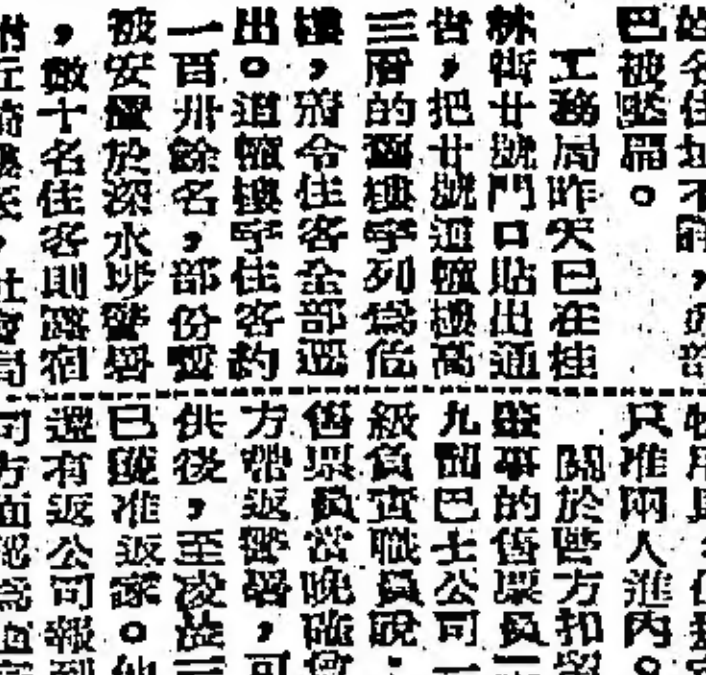 姓名住址不詳，
巴被壓扁。
工務局昨天已在桂
林街廿號門口貼出通
告，把廿號這幢樓高
三層的舊樓宇列爲危
樓，飛令住客全部遷
出。這幢樓宇住客約
一百卅餘名，部份暫
被安置於深水埗警署
，數十名住客則露宿
附近騎樓
只准兩人進內。
關於警方扣留
肇事的售票員一
九龍巴士公司一
級負責職員說：
售票員當晚確曾
方帶返警署，可
供後，至凌晨三
已獲准返家。他
還有返公司報到
司方面認爲